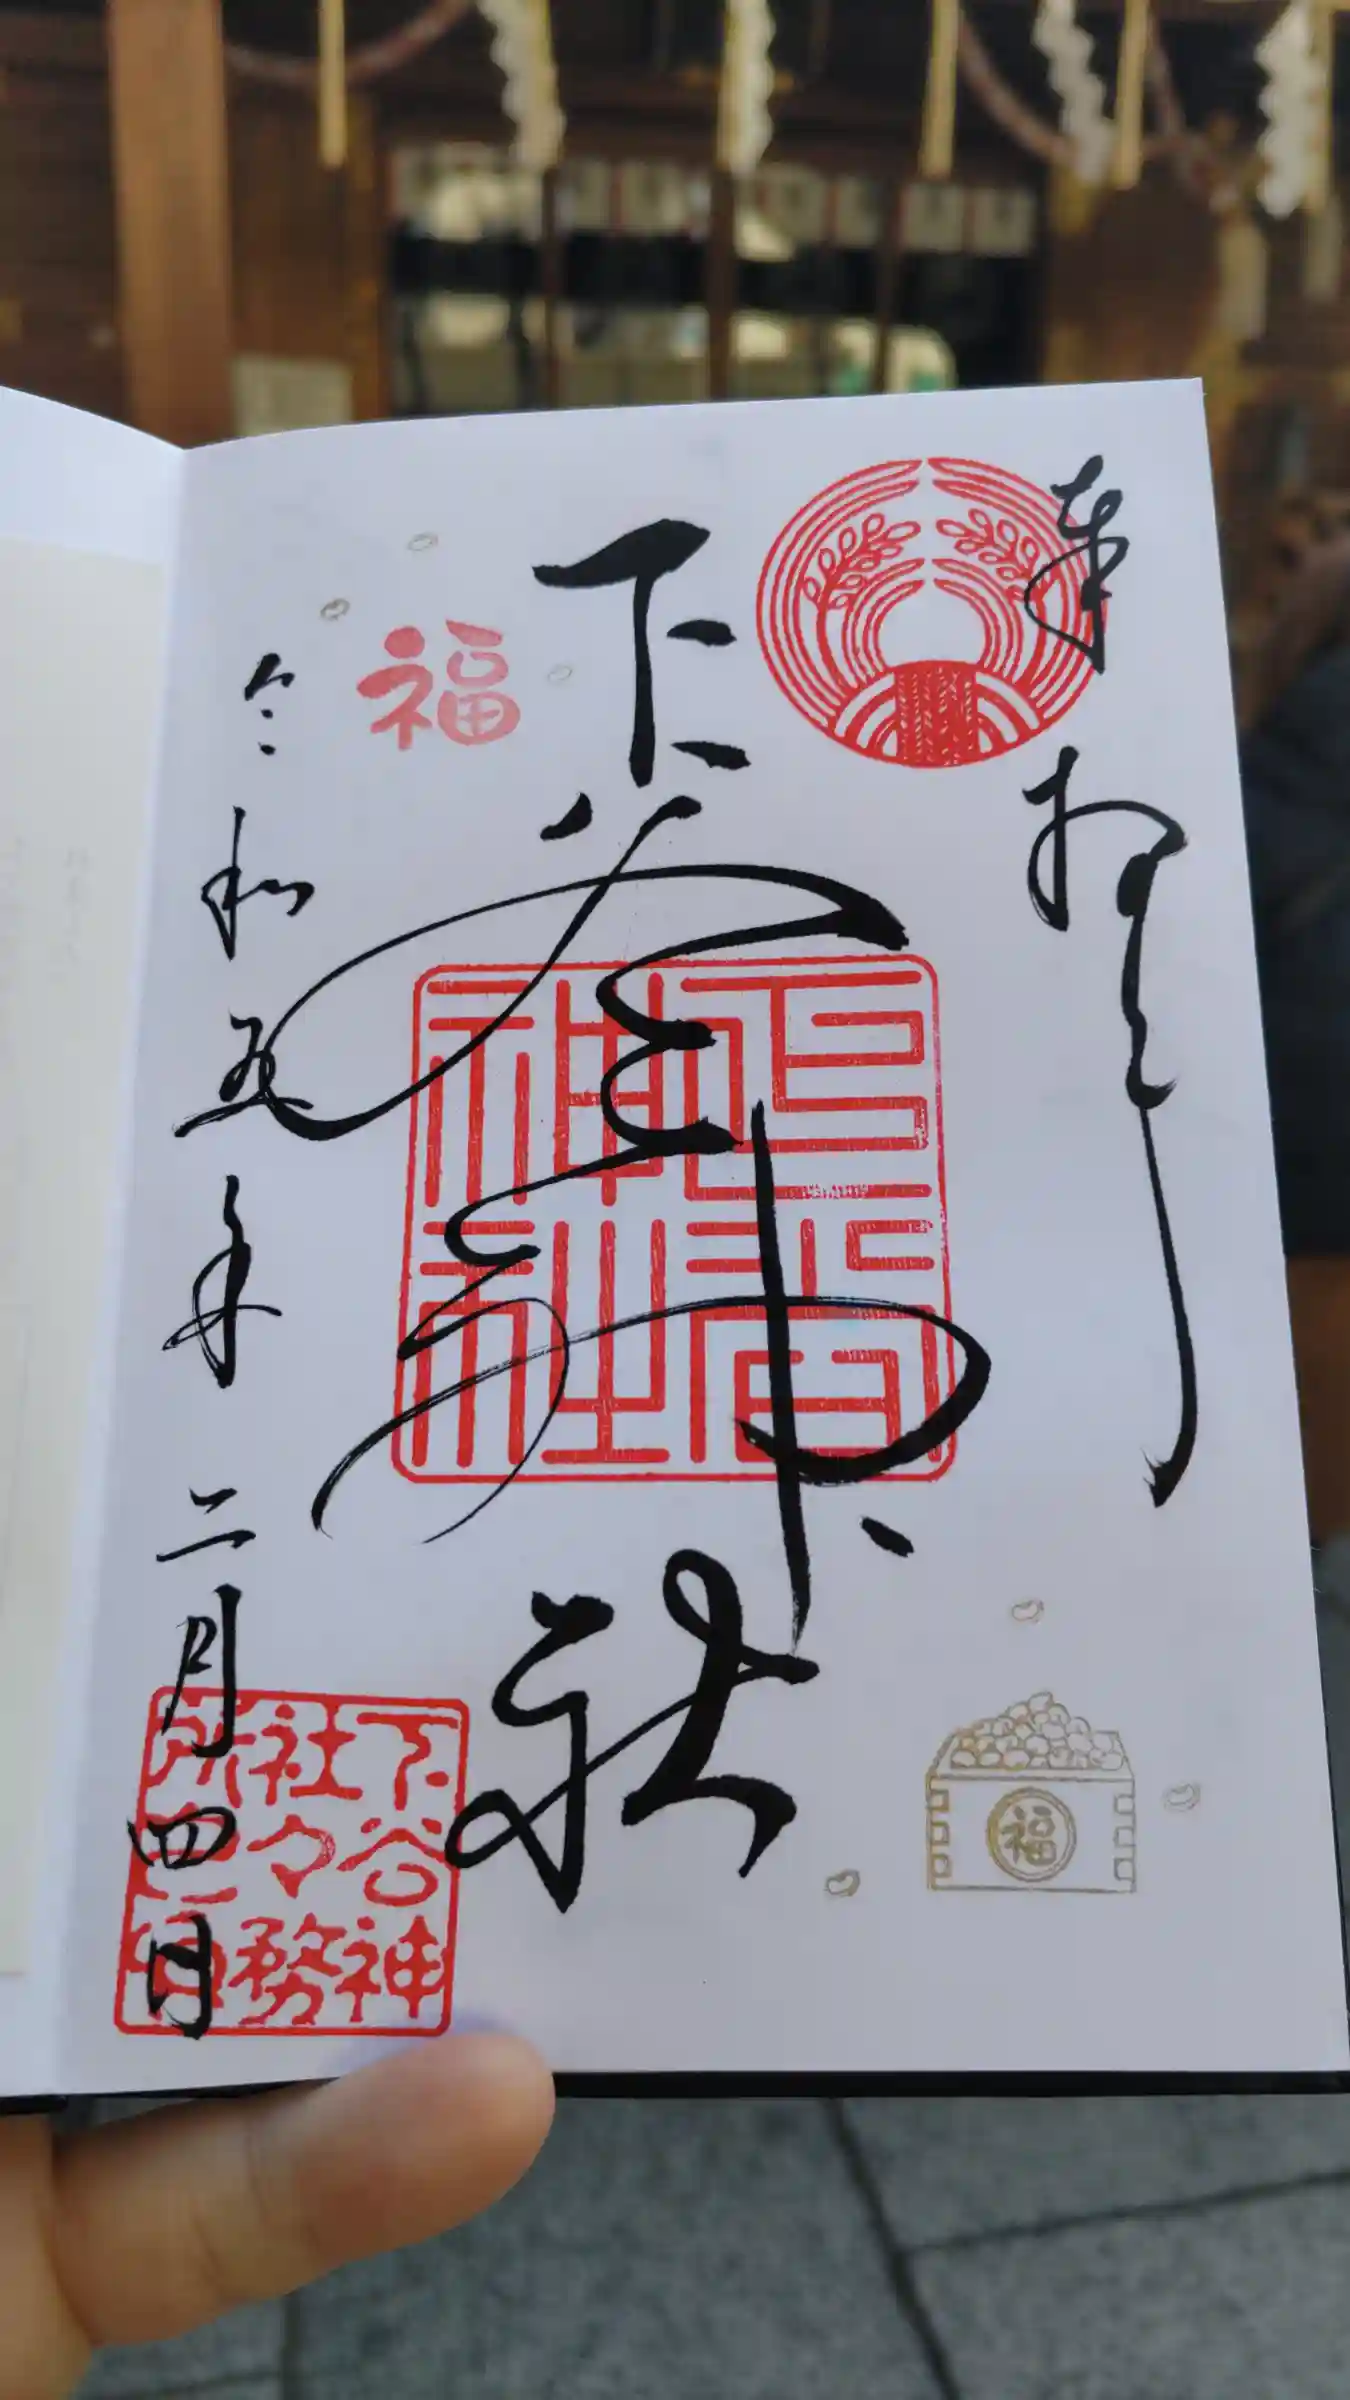 奉拝
下谷神社
福
令和五年二月四日
下谷神
社々務
所
福